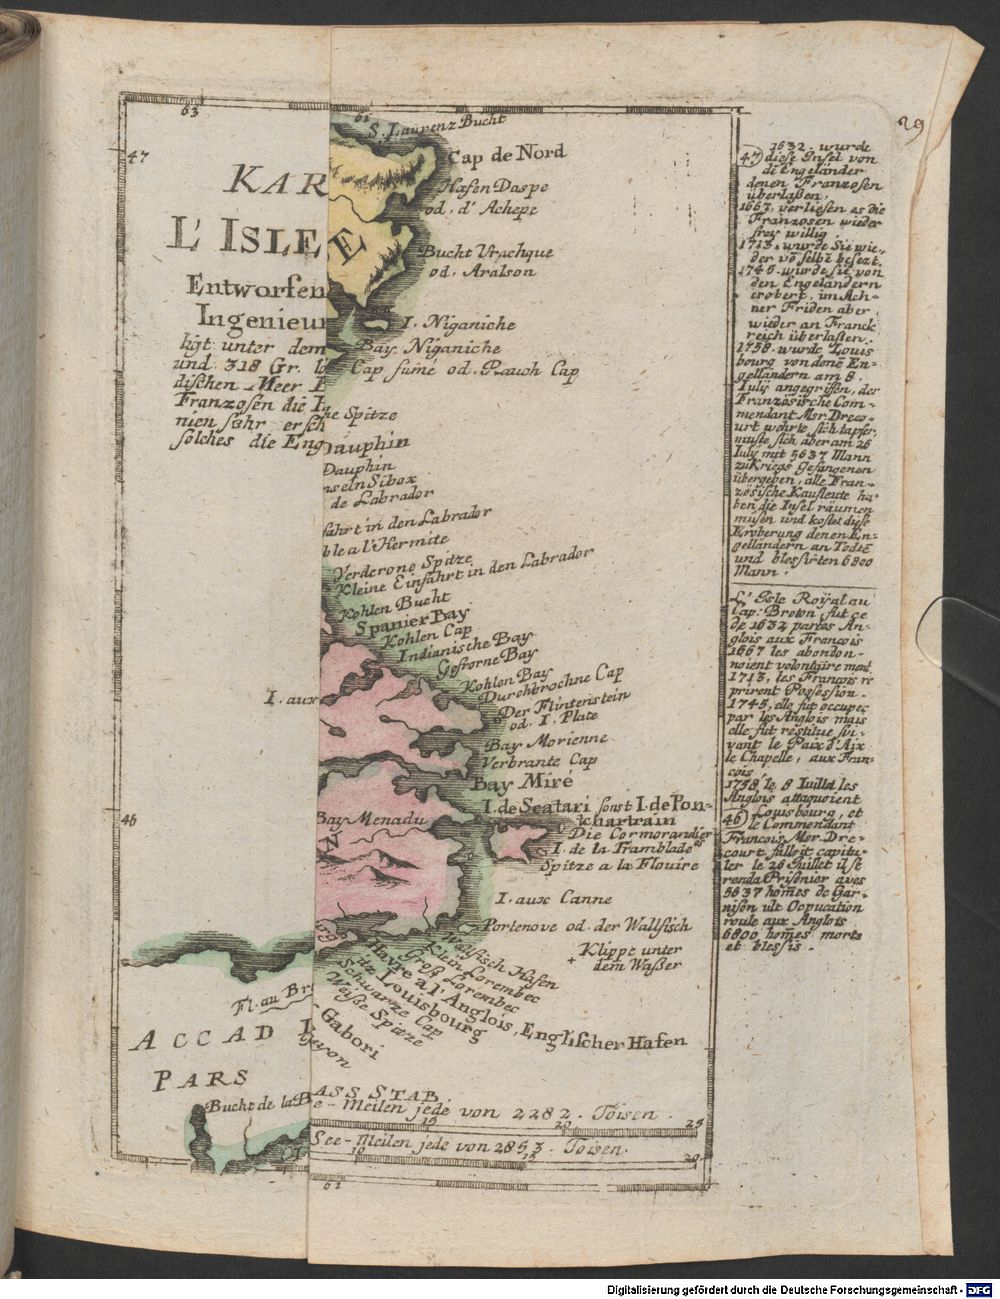 29
63
61
47
KAR
L'ISLE
E
Entworfen
Ingenieur
ligt unter dem
und 318 Gr.
dischen Meer
Franzosen die
nien sehr ersch
solches die Eng
S. Laurenz Bucht
Cap de Nord
Hafen Daspe
od. d' Achepe
Bucht Vrachque
od. Aralson
I. Niganiche
Bay Niganiche
Cap fumé od. Rauch Cap
he Spitze
Dauphin
Dauphin
nseln Sibox
de Labrador
fahrt in den Labrador
ble a l'Hermite
Verderone Spitze
Kleine Einfahrt in den Labrador
Kohlen Bucht
Spanier Bay
Kohlen Cap
Indianische Bay
Gefrorne Bay
Kohlen Bay
Durchbrochne Cap
Der Flintenstein
od. I. Plate
I. aux
Bay Morienne
Verbrante Cap
Bay Miré
I. de Scatari sonst I. de Pon-
chartrain
46
Bay Menadu
Die Cormorandier
I. de la Tramblade
Spitze a la Flouire
I. aux Canne
Portenove od. der Wallfisch
Klippe unter
dem Waßer
Wallfisch Hafen
Klein Lorembec
Groß Lorembec
Havre à l'Anglois, Englischer Hafen
Louisbourg
Schwarze Cap
Weiße Spitze
Gabori
Fl. au Br
ACCAD
PARS
Bucht de la B
ASS STAB.
e-Meilen jede von 2282. Toisen.
15
20
25
See-Meilen jede von 2853. Toisen.
10
15
20
61
1632. wurde
47 diese Insel von
dē Engeländer
denen Franzosen
überlaßen.
1667. verliesen es die
Franzosen wieder
frey willig
1713. wurde Sie wie-
der vō selbē besezt.
1745. wurde sie von
den Engeländern
erobert, im Ach-
ner Friden aber
wieder an Franck
reich überlaßen.
1758. wurde Louis
bourg von denē En-
gelländern am 8.
Iulij angegriffen, der
Französische Com-
mendant Msr. Dreco-
urt wehrte sich tapfer,
muste sich aber am 26
Iulij mit 5637 Mann
zu Kriegs Gefangenen
übergeben, alle Fran-
zösische Kaufleute ha-
ben die Insel räumen
müsen und kostet diese
Eroberung denen En-
gelländern an Todtē
und blessirten 6800
Mann.
L'Isle Roÿal au
Cap: Breton, fut ce
de 1632 par les An-
glois aux Francois
1667 les abondon-
noient volontaire ment
1713, les Francois re
prirent Possession.
1745, elle fut occupee
par les Anglois mais
elle fut restitue sui-
vant le Paix d'Aix
le Chapelle, aux Fran-
cois
1758, le 8 Iuillet les
Anglois attaquoient
46 Louisbourg, et
le Commendant
Francois, Msr. Dre-
court falloit capitu-
ler le 26 Iuillet il se
renda Prisonier aves
5637 hom̄es de Gar-
nison ult Occucation
roule aux Anglois
6800 hom̄es morts
et blessis.
Digitalisierung gefördert durch die Deutsche Forschungsgemeinschaft - DFG